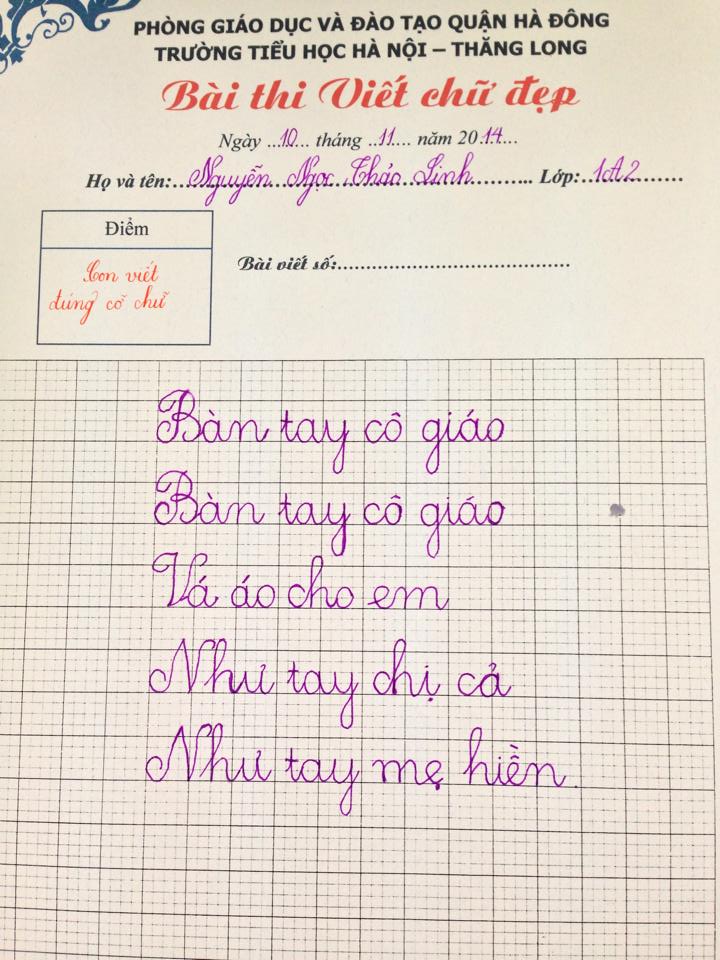 PHÒNG GIÁO DỤC VÀ ĐÀO TẠO QUẬN HÀ ĐÔNG
TRƯỜNG TIỂU HỌC HÀ NỘI – THĂNG LONG
Bài thi Viết chữ đẹp
Ngày ...10... tháng ..11.... năm 2014....
Họ và tên:...Nguyễn Ngọc Thảo Linh........... Lớp:..1A2........
Điểm
Con viết
đúng cỡ chữ
Bài viết số:.......................................
Bàn tay cô giáo
Bàn tay cô giáo
Vá áo cho em
Như tay chị cả
Như tay mẹ hiền.